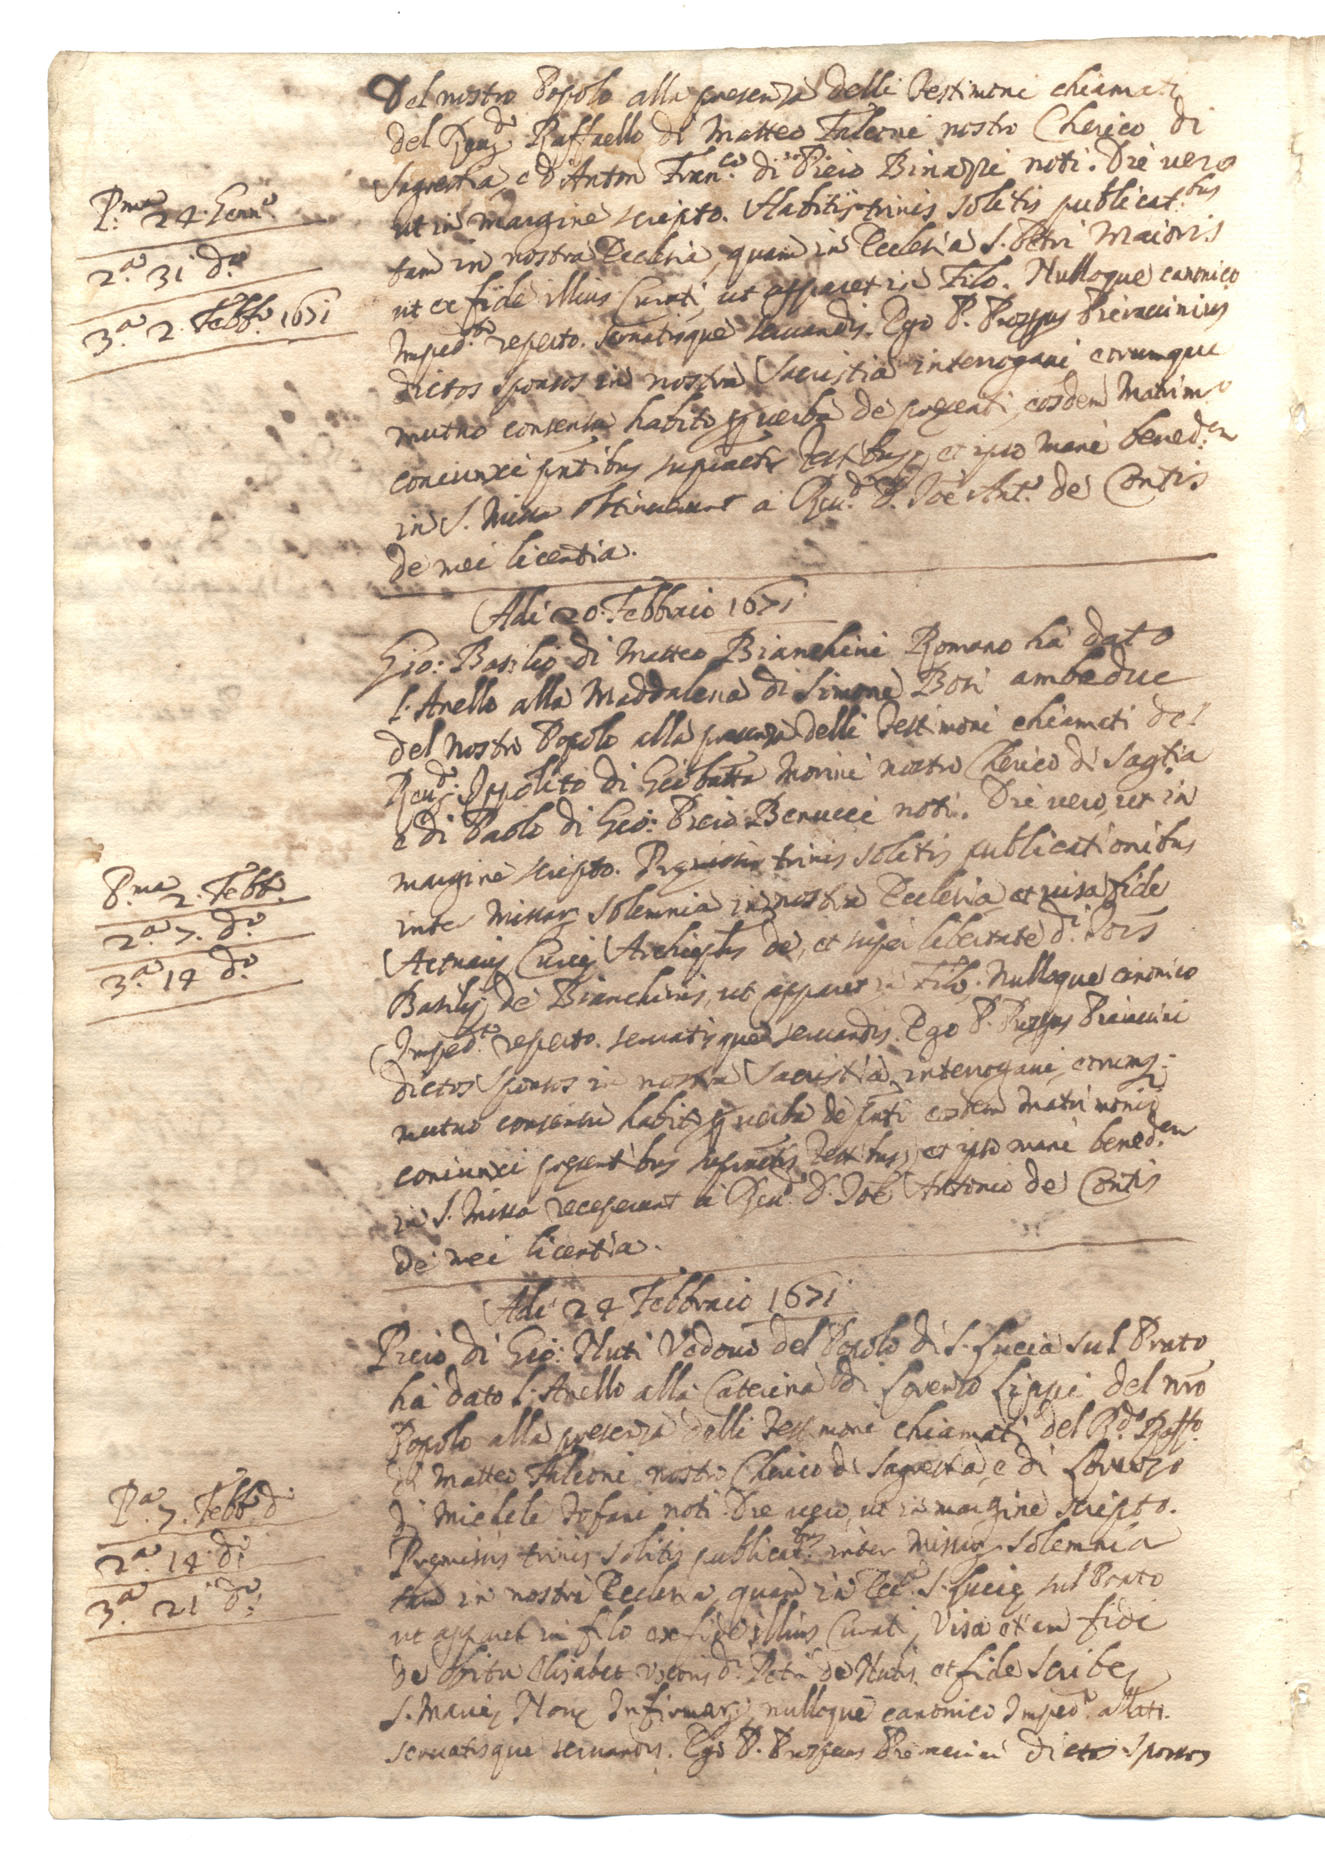 Del nostro Popolo alla presenza delli Testimoni chiamati
del Reu.do Raffaello di Matteo Falconi nostro Cherico di
Sagrestia, e d'Anton Fran.co di Piero noti. Die vero
P.ma 24 Genn.o
ut in margine scripto. Habitis trinis solitis publicat.bus
2.a 31 d.o
tam in nostra Ecclesia, quam in Ecclesia S. Petri Maioris
3.a 2. Febb.o 1671
ut ex fide illius Curati, ut apparet in Filo. Nulloque canonico
Imped.to reperto. seruatisque seruandis. Ego P.
dictos sponsos in nostra Sacristia interrogaui eorumque
mutuo consensu habito p uerba de presenti, eosdem Matrim.o
coniunxi pntibus supractis Testibus, et ipso mane bened.em
in S. Missa obtinuerunt a Reu.do D. Joe Ant.o de Contis
de mei licentia.
Adi 20. Febbraio 1671
Gio: Basilio di Matteo Bianchini Romano ha dato
l'Anello alla Maddalena di Simone Bosi ambedue
del nostro Popolo alla presenza delli Testimoni chiamati del
Reu.do Ippolito di Gio batta Morini nostro Cherico di Sagtia
e di Paolo di Gio: Piero Benucci noti. Die vero, ut in
P.ma 2. Febb.o
margine scripto. Premissis trinis solitis publicationibus
2.a 7. d.o
inter Missar solemnia in nostra Ecclesia et uisa fide
3.a 14 d.o
Actuarij Curie Archieplis de, et super libertate d.i Jois
Basilij de Bianchinis, ut apparet in Filo. Nulloque canonico
Imped.to reperto. seruatisque seruandis. Ego P.
dictos sponsos in nostra Sacristia interrogaui, eorumq.
mutuo consensu habito p uerba de pnti eosdem Matrimonio
coniunxi presentibus supractis Testibus, et ipso mane bened.em
in S. Missa receperunt a Reu.do D. Joe Antonio de Contis
de mei licentia.
Adi 24 Febbraio 1671
Piero di Gio: Nuti Vedouo del Popolo di S. Lucia sul Prato
ha dato l'Anello alla Caterina di Lorenzo Lippi del nro
Popolo alla presenza delli Testimoni chiamati del R.do Raff.o
di Matteo Falconi nostro Cherico di Sagrestia, e di Lorenzo
P.a 7. Febb.o d.
di Michele Tofani noti. Die uero, ut in margine scripto.
2.a 14 d.o
Premissis trinis solitis publicat.bus inter Missar solemnia
3.a 21 d.o
tam in nostra Ecclesia, quam in Ecc.a S. Lucie sul Prato
ut apparet in filo ex fide illius Curati, Visa etiam fide
de obitu Elisabet uxoris d.i Petri de Nutis, et fide Scribe
S. Marie Noue Infirmar, nulloque canonico Imped.o allati.
seruatisque seruandis. Ego P. dictos sponsos